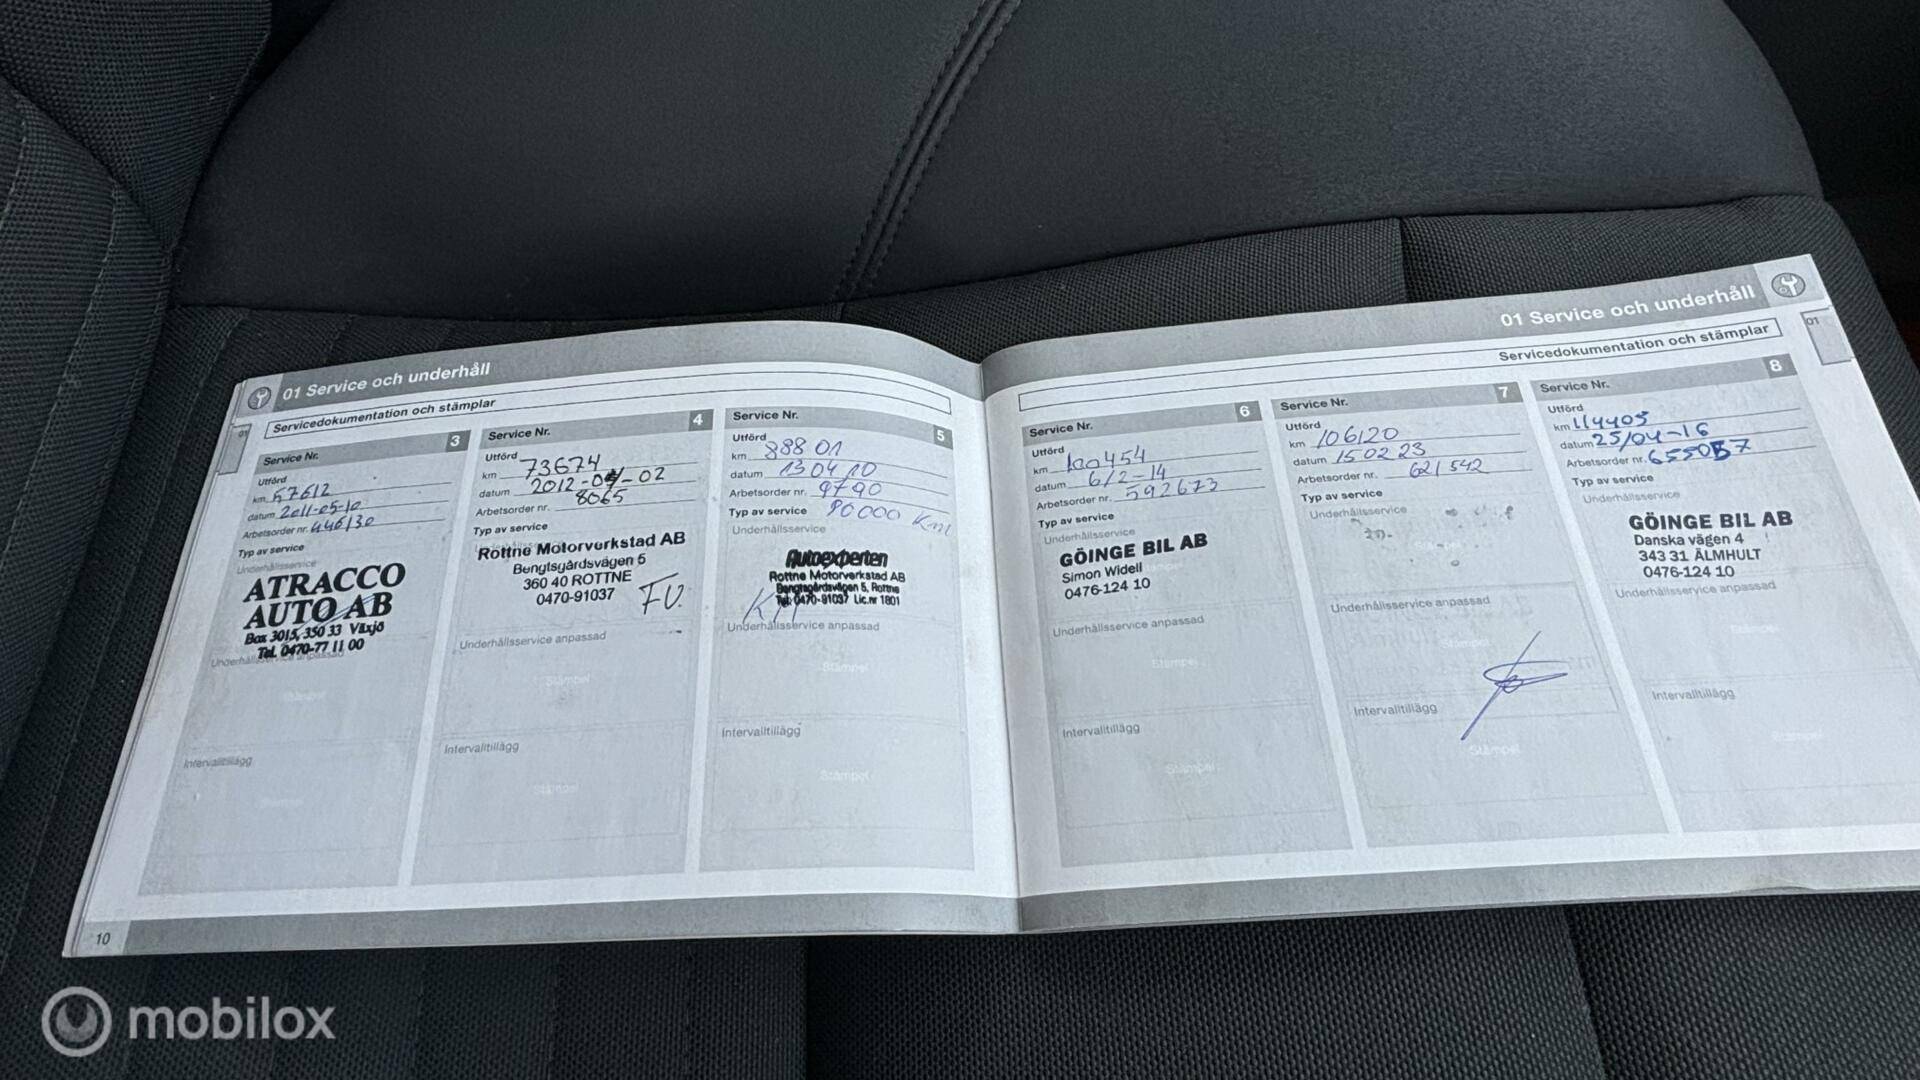 01 Service och underhåll
Servicedokumentation och stämplar
01
Service Nr. 3
Utförd
km 57612
datum 2011-05-10
Arbetsorder nr. 446130
Typ av service
Underhållsservice
ATRACCO
AUTO AB
Box 3015, 350 33 Växjö
Tel. 0470-77 11 00
Underhållsservice anpassad
Stämpel
Intervalltillägg
Stämpel
Service Nr. 4
Utförd
km 73674
datum 2012-04-02
Arbetsorder nr. 8065
Typ av service
Rottne Motorverkstad AB
Bengtsgårdsvägen 5
360 40 ROTTNE
0470-91037
FU.
Underhållsservice anpassad
Stämpel
Intervalltillägg
Stämpel
Service Nr. 5
Utförd
km 88801
datum 130410
Arbetsorder nr. 9790
Typ av service 90000 Km
Underhållsservice
Autoexperten
Rottne Motorverkstad AB
Bengtsgårdsvägen 5, Rottne
Tel: 0470-91037 Lic.nr 1801
Underhållsservice anpassad
Stämpel
Intervalltillägg
Stämpel
10
01 Service och underhåll
Servicedokumentation och stämplar
01
Service Nr. 6
Utförd
km 100454
datum 6/2-14
Arbetsorder nr. 592673
Typ av service
Underhållsservice
GÖINGE BIL AB
Simon Widell
0476-124 10
Underhållsservice anpassad
Stämpel
Intervalltillägg
Stämpel
Service Nr. 7
Utförd
km 106120
datum 150223
Arbetsorder nr. 621542
Typ av service
Underhållsservice
Underhållsservice anpassad
Stämpel
Intervalltillägg
Stämpel
Service Nr. 8
Utförd
km 114405
datum 25/04-16
Arbetsorder nr. 655057
Typ av service
Underhållsservice
GÖINGE BIL AB
Danska vägen 4
343 31 ÄLMHULT
0476-124 10
Underhållsservice anpassad
Stämpel
Intervalltillägg
Stämpel
mobilox